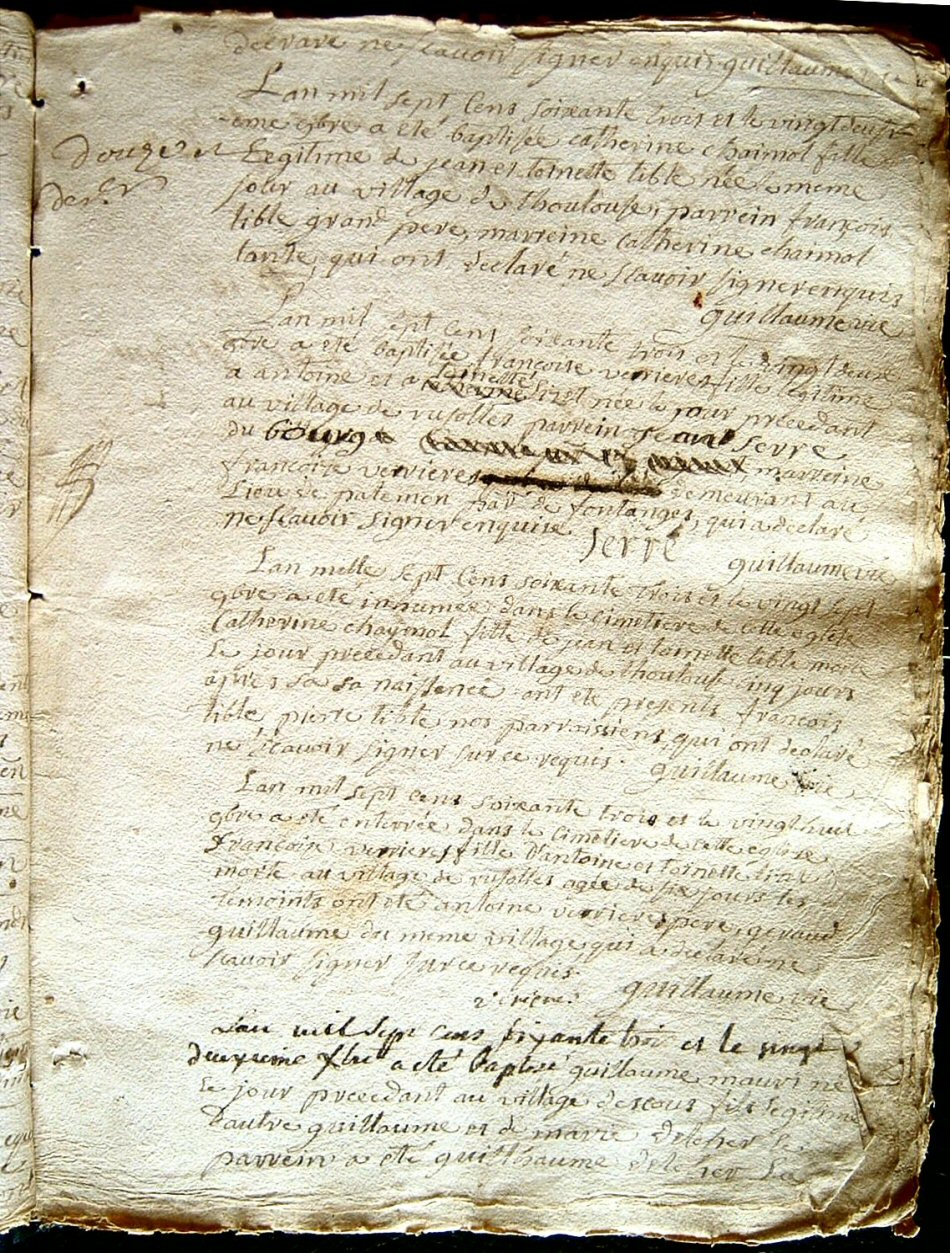 declare ne scavoir signer enquis. guillaume vie
Lan mil sept Cens soixante trois et le vingt deuxi
-eme 9bre a eté baptisée catherine chaimol fille
Legitime de jean et toinette tible née le meme
jour au village de thoulouse, parrein françois
tible grand pere, marreine Catherine chaimol
tante, qui ont declaré ne scavoir signer enquis
guillaume vie
Lan mil sept Cens soixante trois et le vingt deux
9bre a eté baptisée françoise verrieres fille legitime
a antoine et a toinette née le jour precedant
au village de rusolles parrein serre
du bourg marreine
françoise verrieres demeurant au
Lieu de patemon de fontanges, qui a declaré
ne scavoir signer enquise
serre guillaume vie
Lan mille sept Cens soixante trois et le vingt sept
9bre a eté innumée dans le cimetiere de cette eglise
Catherine chaymol fille de jean et toinette tible morte
Le jour precedant au village de thoulouse cinq jours
apres sa sa naissence ont eté presents françois
tible pierre tible nos parroissiens, qui ont declaré
ne scavoir signer sur ce requis. guillaume vie
Lan mil sept Cens soixante trois et le vingt huit
9bre a eté enterrée dans le Cimetiere de cette eglise
françoise verrieres fille d'antoine et toinette
morte au village de rusolles agée de six jours les
temoints ont eté antoine verrieres pere, geraud
guillaume du meme village, qui a declaré ne
scavoir signer sur ce requis
guillaume vie
Lan mil sept cens sixante troi et le vingt
deuxieme xbre a eté baptisé guillaume mauri né
Le jour precedant au village fils legitime
d'autre guillaume et de marie delcher
parrein a eté guillhaume delcher La